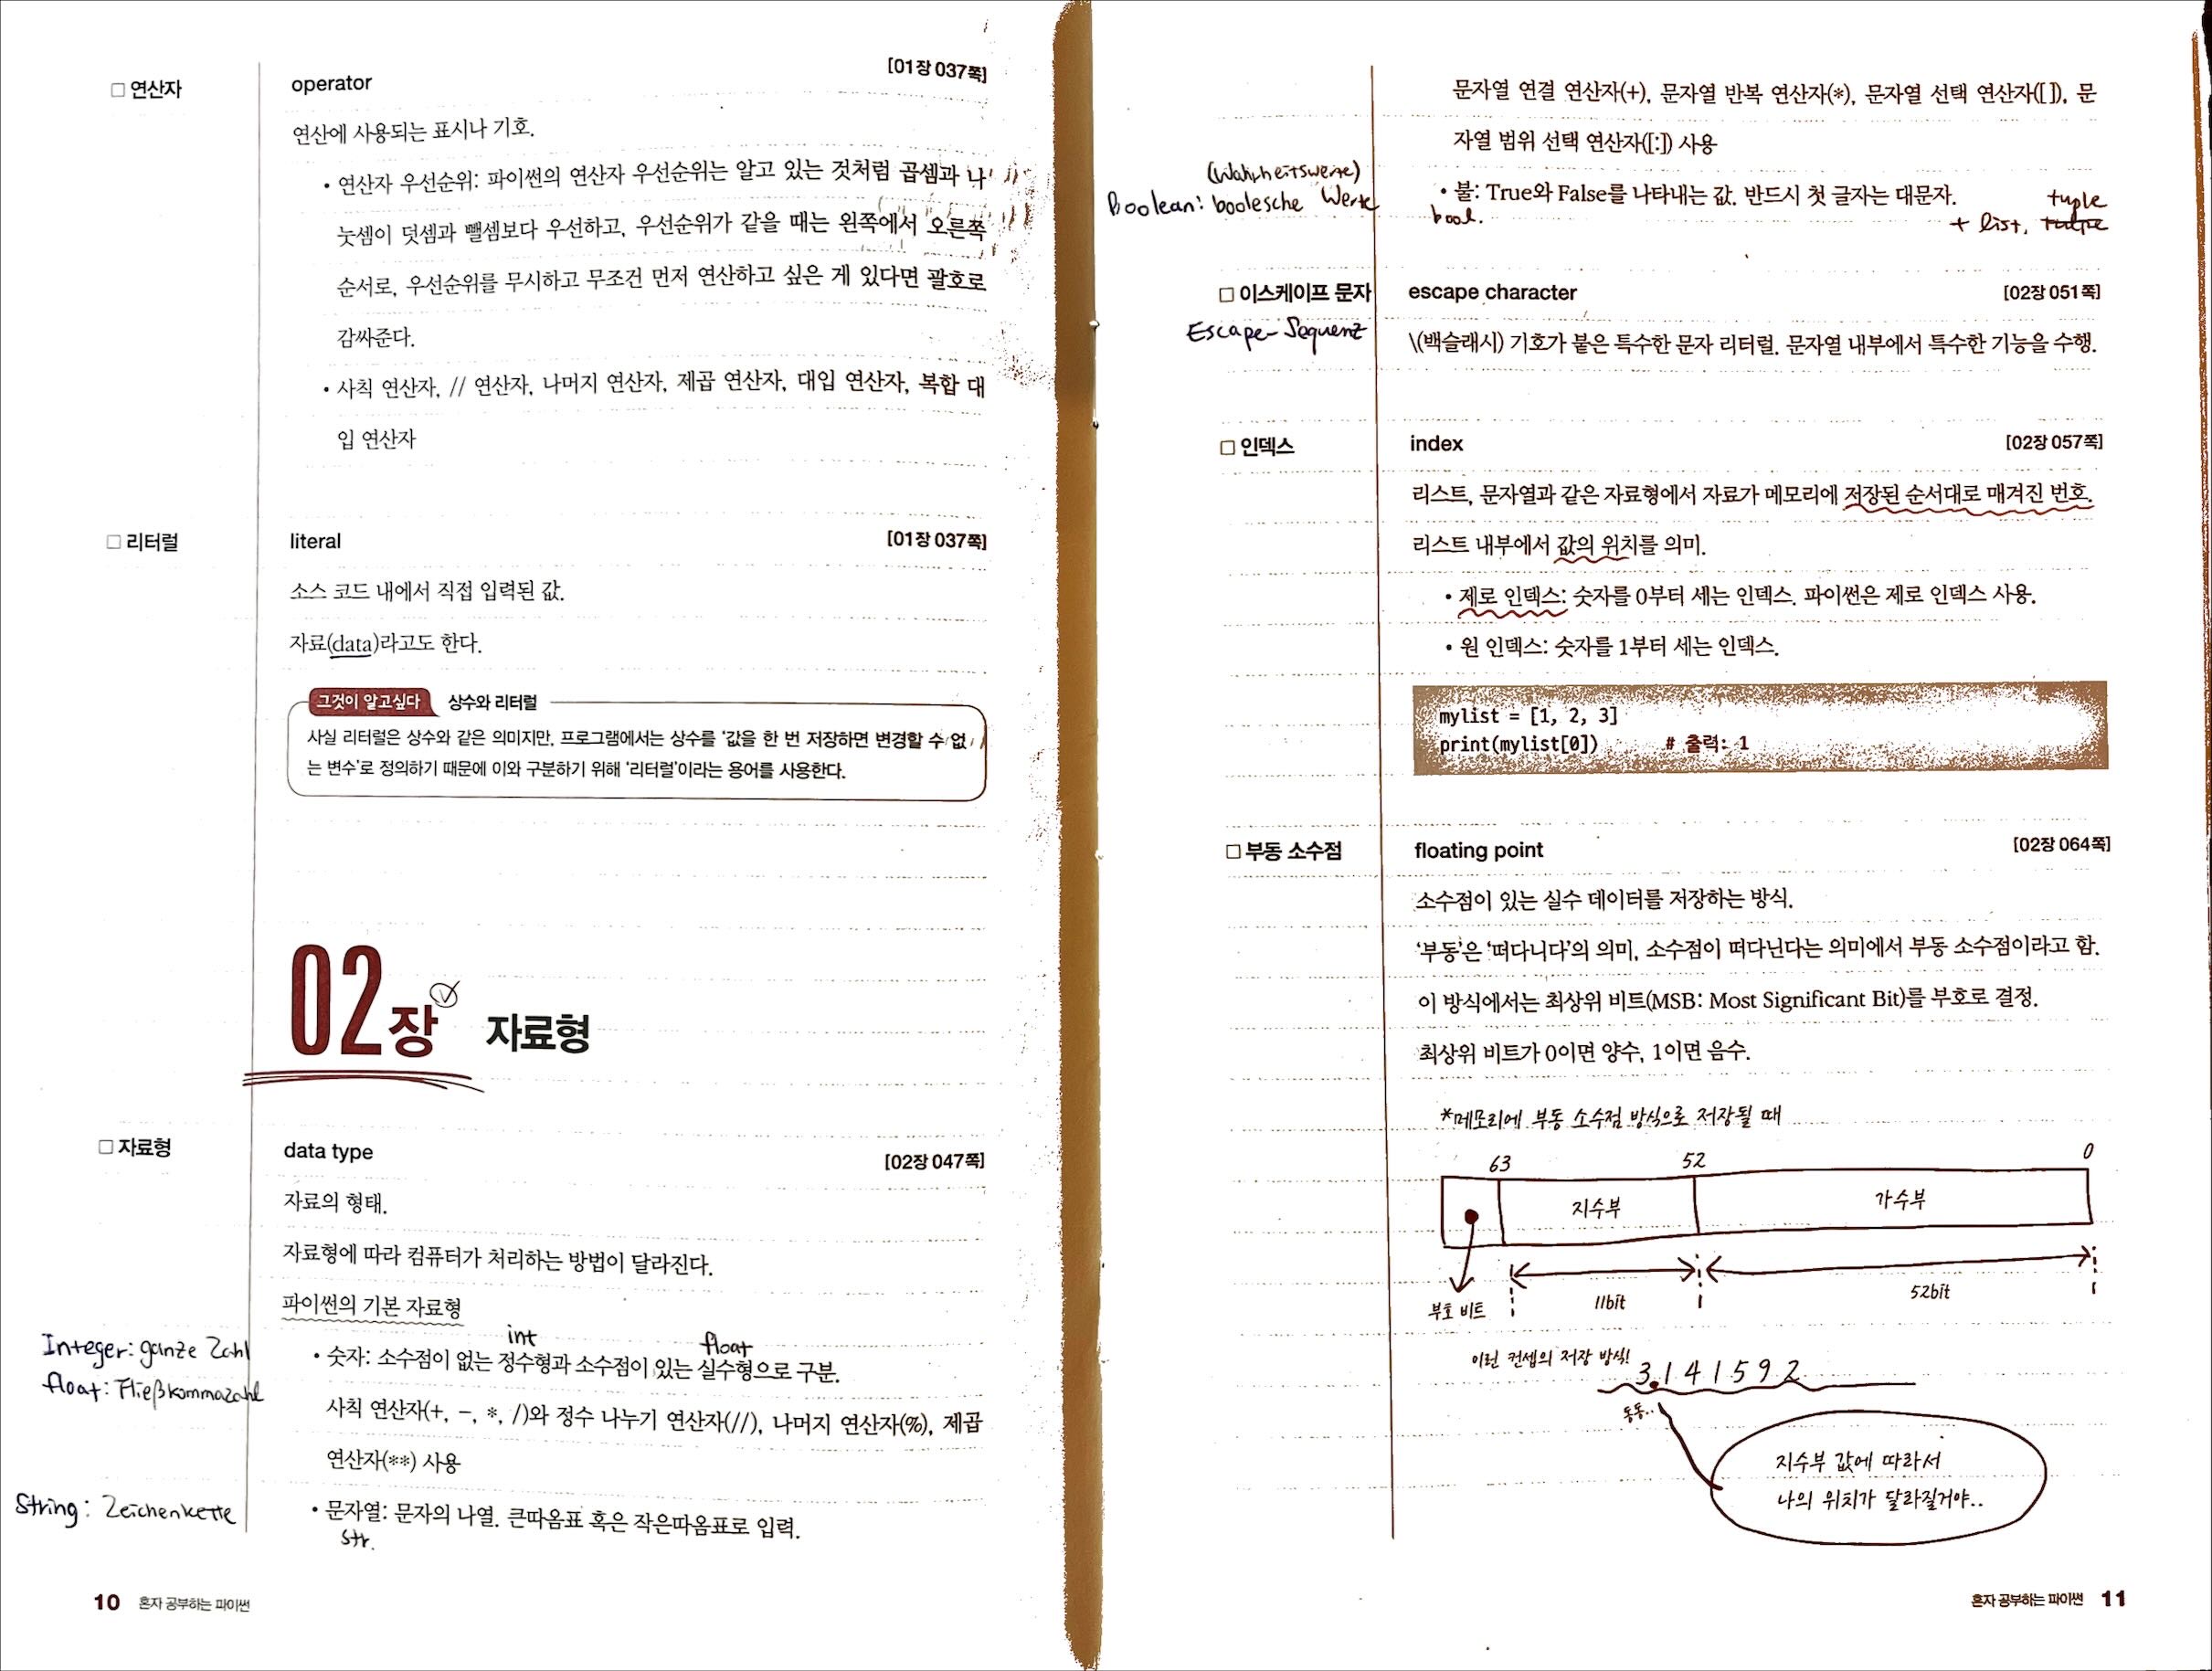 □ 연산자
operator
[01장 037쪽]
연산에 사용되는 표시나 기호.
• 연산자 우선순위: 파이썬의 연산자 우선순위는 알고 있는 것처럼 곱셈과 나
눗셈이 덧셈과 뺄셈보다 우선하고, 우선순위가 같을 때는 왼쪽에서 오른쪽
순서로, 우선순위를 무시하고 무조건 먼저 연산하고 싶은 게 있다면 괄호로
감싸준다.
• 사칙 연산자, // 연산자, 나머지 연산자, 제곱 연산자, 대입 연산자, 복합 대
입 연산자
□ 리터럴
literal
[01장 037쪽]
소스 코드 내에서 직접 입력된 값.
자료(data)라고도 한다.
그것이 알고싶다 상수와 리터럴
사실 리터럴은 상수와 같은 의미지만, 프로그램에서는 상수를 '값을 한 번 저장하면 변경할 수 없
는 변수'로 정의하기 때문에 이와 구분하기 위해 '리터럴'이라는 용어를 사용한다.
02장 자료형
□ 자료형
data type
[02장 047쪽]
자료의 형태.
자료형에 따라 컴퓨터가 처리하는 방법이 달라진다.
파이썬의 기본 자료형
int
float
Integer: ganze Zahl
• 숫자: 소수점이 없는 정수형과 소수점이 있는 실수형으로 구분.
float: Fließkommazahl
사칙 연산자(+, −, *, /)와 정수 나누기 연산자(//), 나머지 연산자(%), 제곱
연산자(**) 사용
String: Zeichenkette
• 문자열: 문자의 나열. 큰따옴표 혹은 작은따옴표로 입력.
str.
10 혼자 공부하는 파이썬
문자열 연결 연산자(+), 문자열 반복 연산자(*), 문자열 선택 연산자([ ]), 문
자열 범위 선택 연산자([:]) 사용
(Wahrheitswerte)
Boolean: boolesche Werte
• 불: True와 False를 나타내는 값. 반드시 첫 글자는 대문자.
bool.
tuple
+ list,
□ 이스케이프 문자
escape character
[02장 051쪽]
Escape-Sequenz
\(백슬래시) 기호가 붙은 특수한 문자 리터럴. 문자열 내부에서 특수한 기능을 수행.
□ 인덱스
index
[02장 057쪽]
리스트, 문자열과 같은 자료형에서 자료가 메모리에 저장된 순서대로 매겨진 번호.
리스트 내부에서 값의 위치를 의미.
• 제로 인덱스: 숫자를 0부터 세는 인덱스. 파이썬은 제로 인덱스 사용.
• 원 인덱스: 숫자를 1부터 세는 인덱스.
mylist = [1, 2, 3]
print(mylist[0]) # 출력: 1
□ 부동 소수점
floating point
[02장 064쪽]
소수점이 있는 실수 데이터를 저장하는 방식.
'부동'은 '떠다니다'의 의미, 소수점이 떠다닌다는 의미에서 부동 소수점이라고 함.
이 방식에서는 최상위 비트(MSB: Most Significant Bit)를 부호로 결정.
최상위 비트가 0이면 양수, 1이면 음수.
*메모리에 부동 소수점 방식으로 저장될 때
63 52 0
지수부 가수부
부호 비트 11bit 52bit
이런 컨셉의 저장 방식!
3.141592
동동..
지수부 값에 따라서
나의 위치가 달라질거야..
혼자 공부하는 파이썬 11